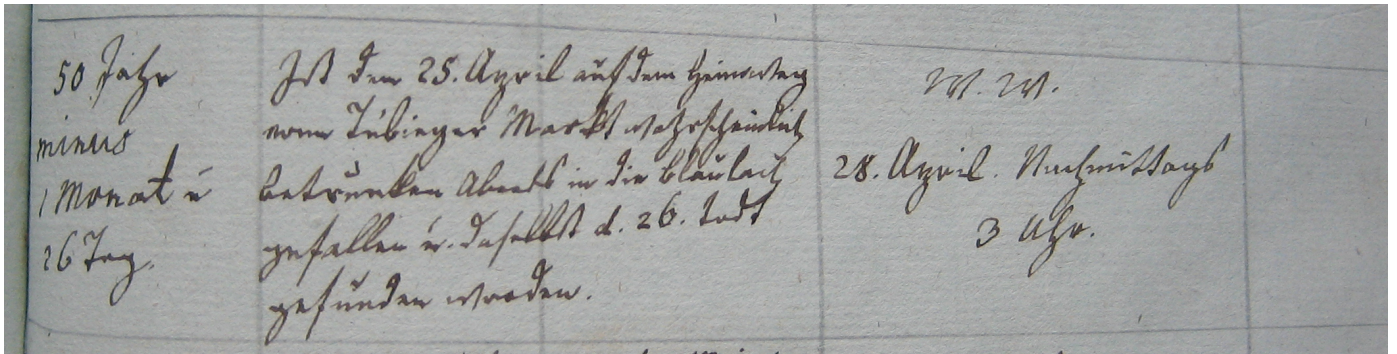 50 Jahr
minus
1 Monat u
26 Tag.
Ist den 25. April auf dem Heimweg
vom Tübinger Markt wahrscheinlich
betrunken Abends in die Blaulach
gefallen u. daselbst d. 26. todt
gefunden worden.
W. W.
28. April. Nachmittags
3 Uhr.